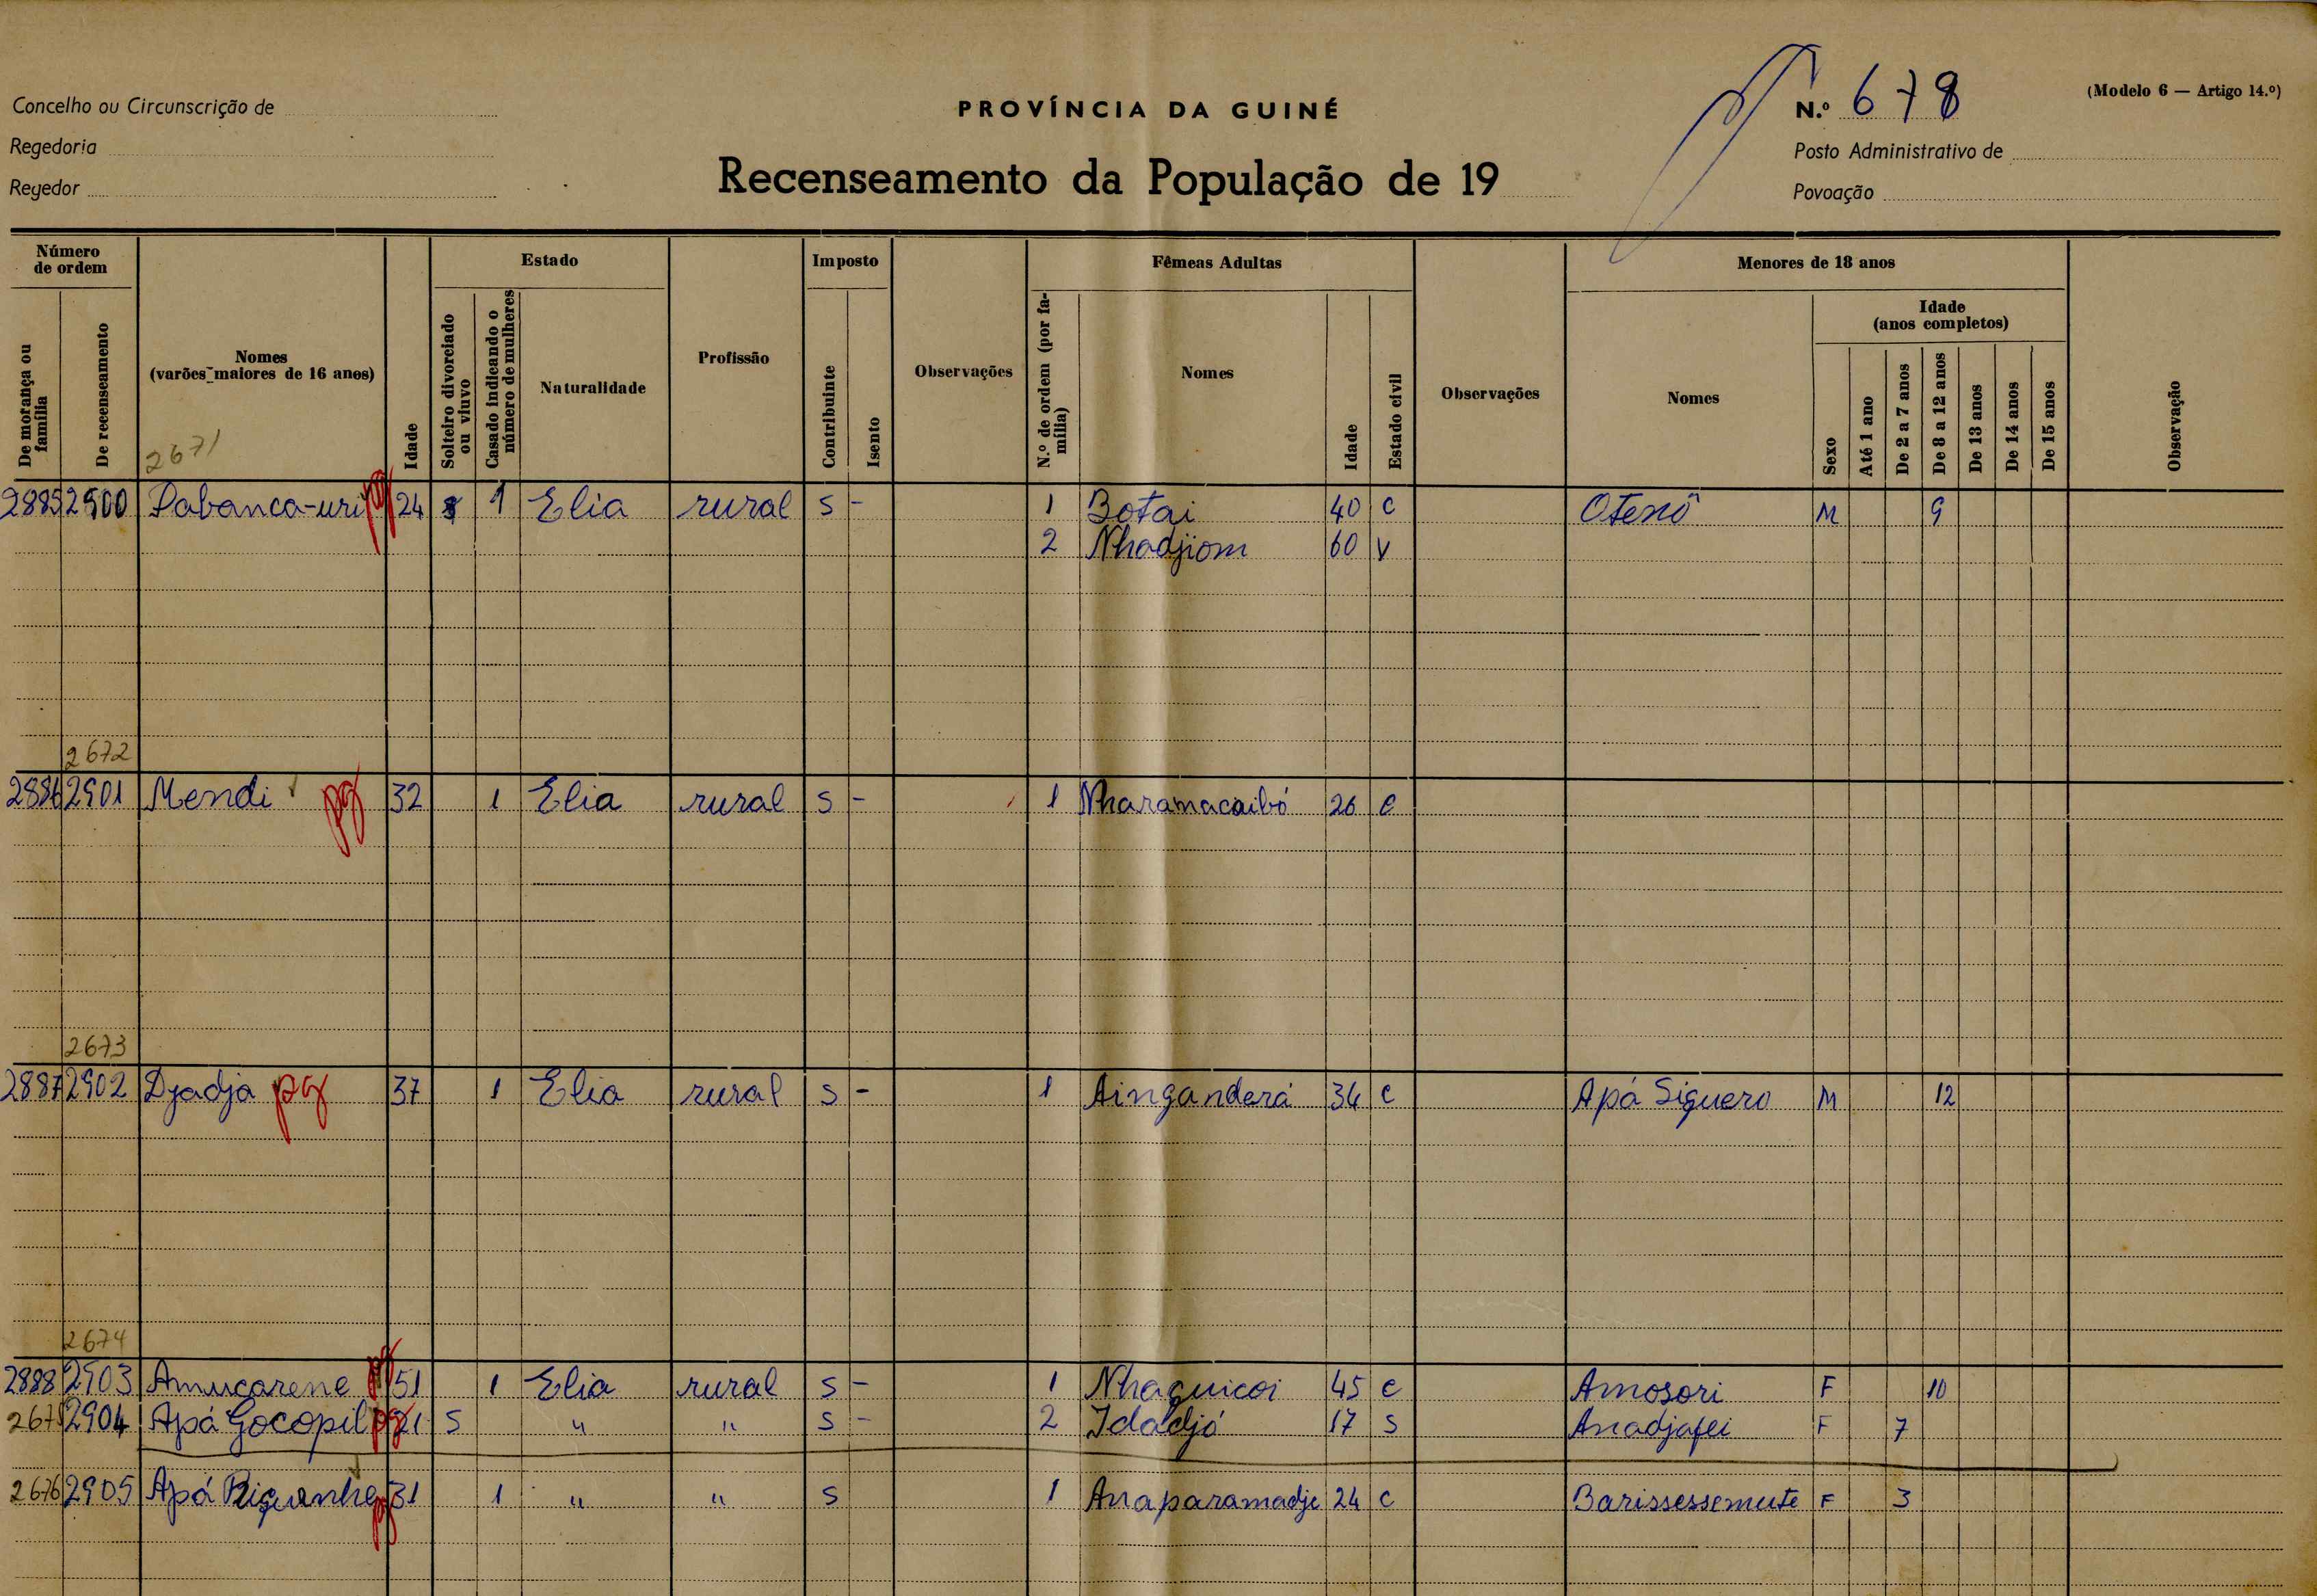 Concelho ou Circunscrição de
Regedoria
Regedor
PROVÍNCIA DA GUINÉ
Recenseamento da População de 19
N.º 678
(Modelo 6 — Artigo 14.º)
Posto Administrativo de
Povoação
Número de ordem
De morança ou família
De recenseamento
Nomes
(varões maiores de 16 anos)
2671
Idade
Estado
Solteiro divorciado ou viuvo
Casado indicando o número de mulheres
Naturalidade
Profissão
Imposto
Contribuinte
Isento
Observações
Fêmeas Adultas
N.º de ordem (por família)
Nomes
Idade
Estado civil
Observações
Menores de 18 anos
Nomes
Sexo
Idade
(anos completos)
Até 1 ano
De 2 a 7 anos
De 8 a 12 anos
De 13 anos
De 14 anos
De 15 anos
Observação
2885 2900 Pabanca-uri pg 24 1 Elia rural S - 1 Botai 40 C Otenô M 9
2 Nhadjiom 60 V
2672
2886 2901 Mendi pg 32 1 Elia rural S - 1 Nharamacaibó 26 C
2673
2887 2902 Djadja pg 37 1 Elia rural S - 1 Ainganderá 34 C Apá Siguero M 12
2674
2888 2903 Amucarene pg 51 1 Elia rural S - 1 Nhaguicoi 45 C Amosori F 10
2675 2904 Apá Gocopil pg 21 S " " S - 2 Idadjó 17 S Anadjafei F 7
2676 2905 Apá Riguanhe pg 31 1 " " S 1 Anaparamadje 24 C Barissessemute F 3